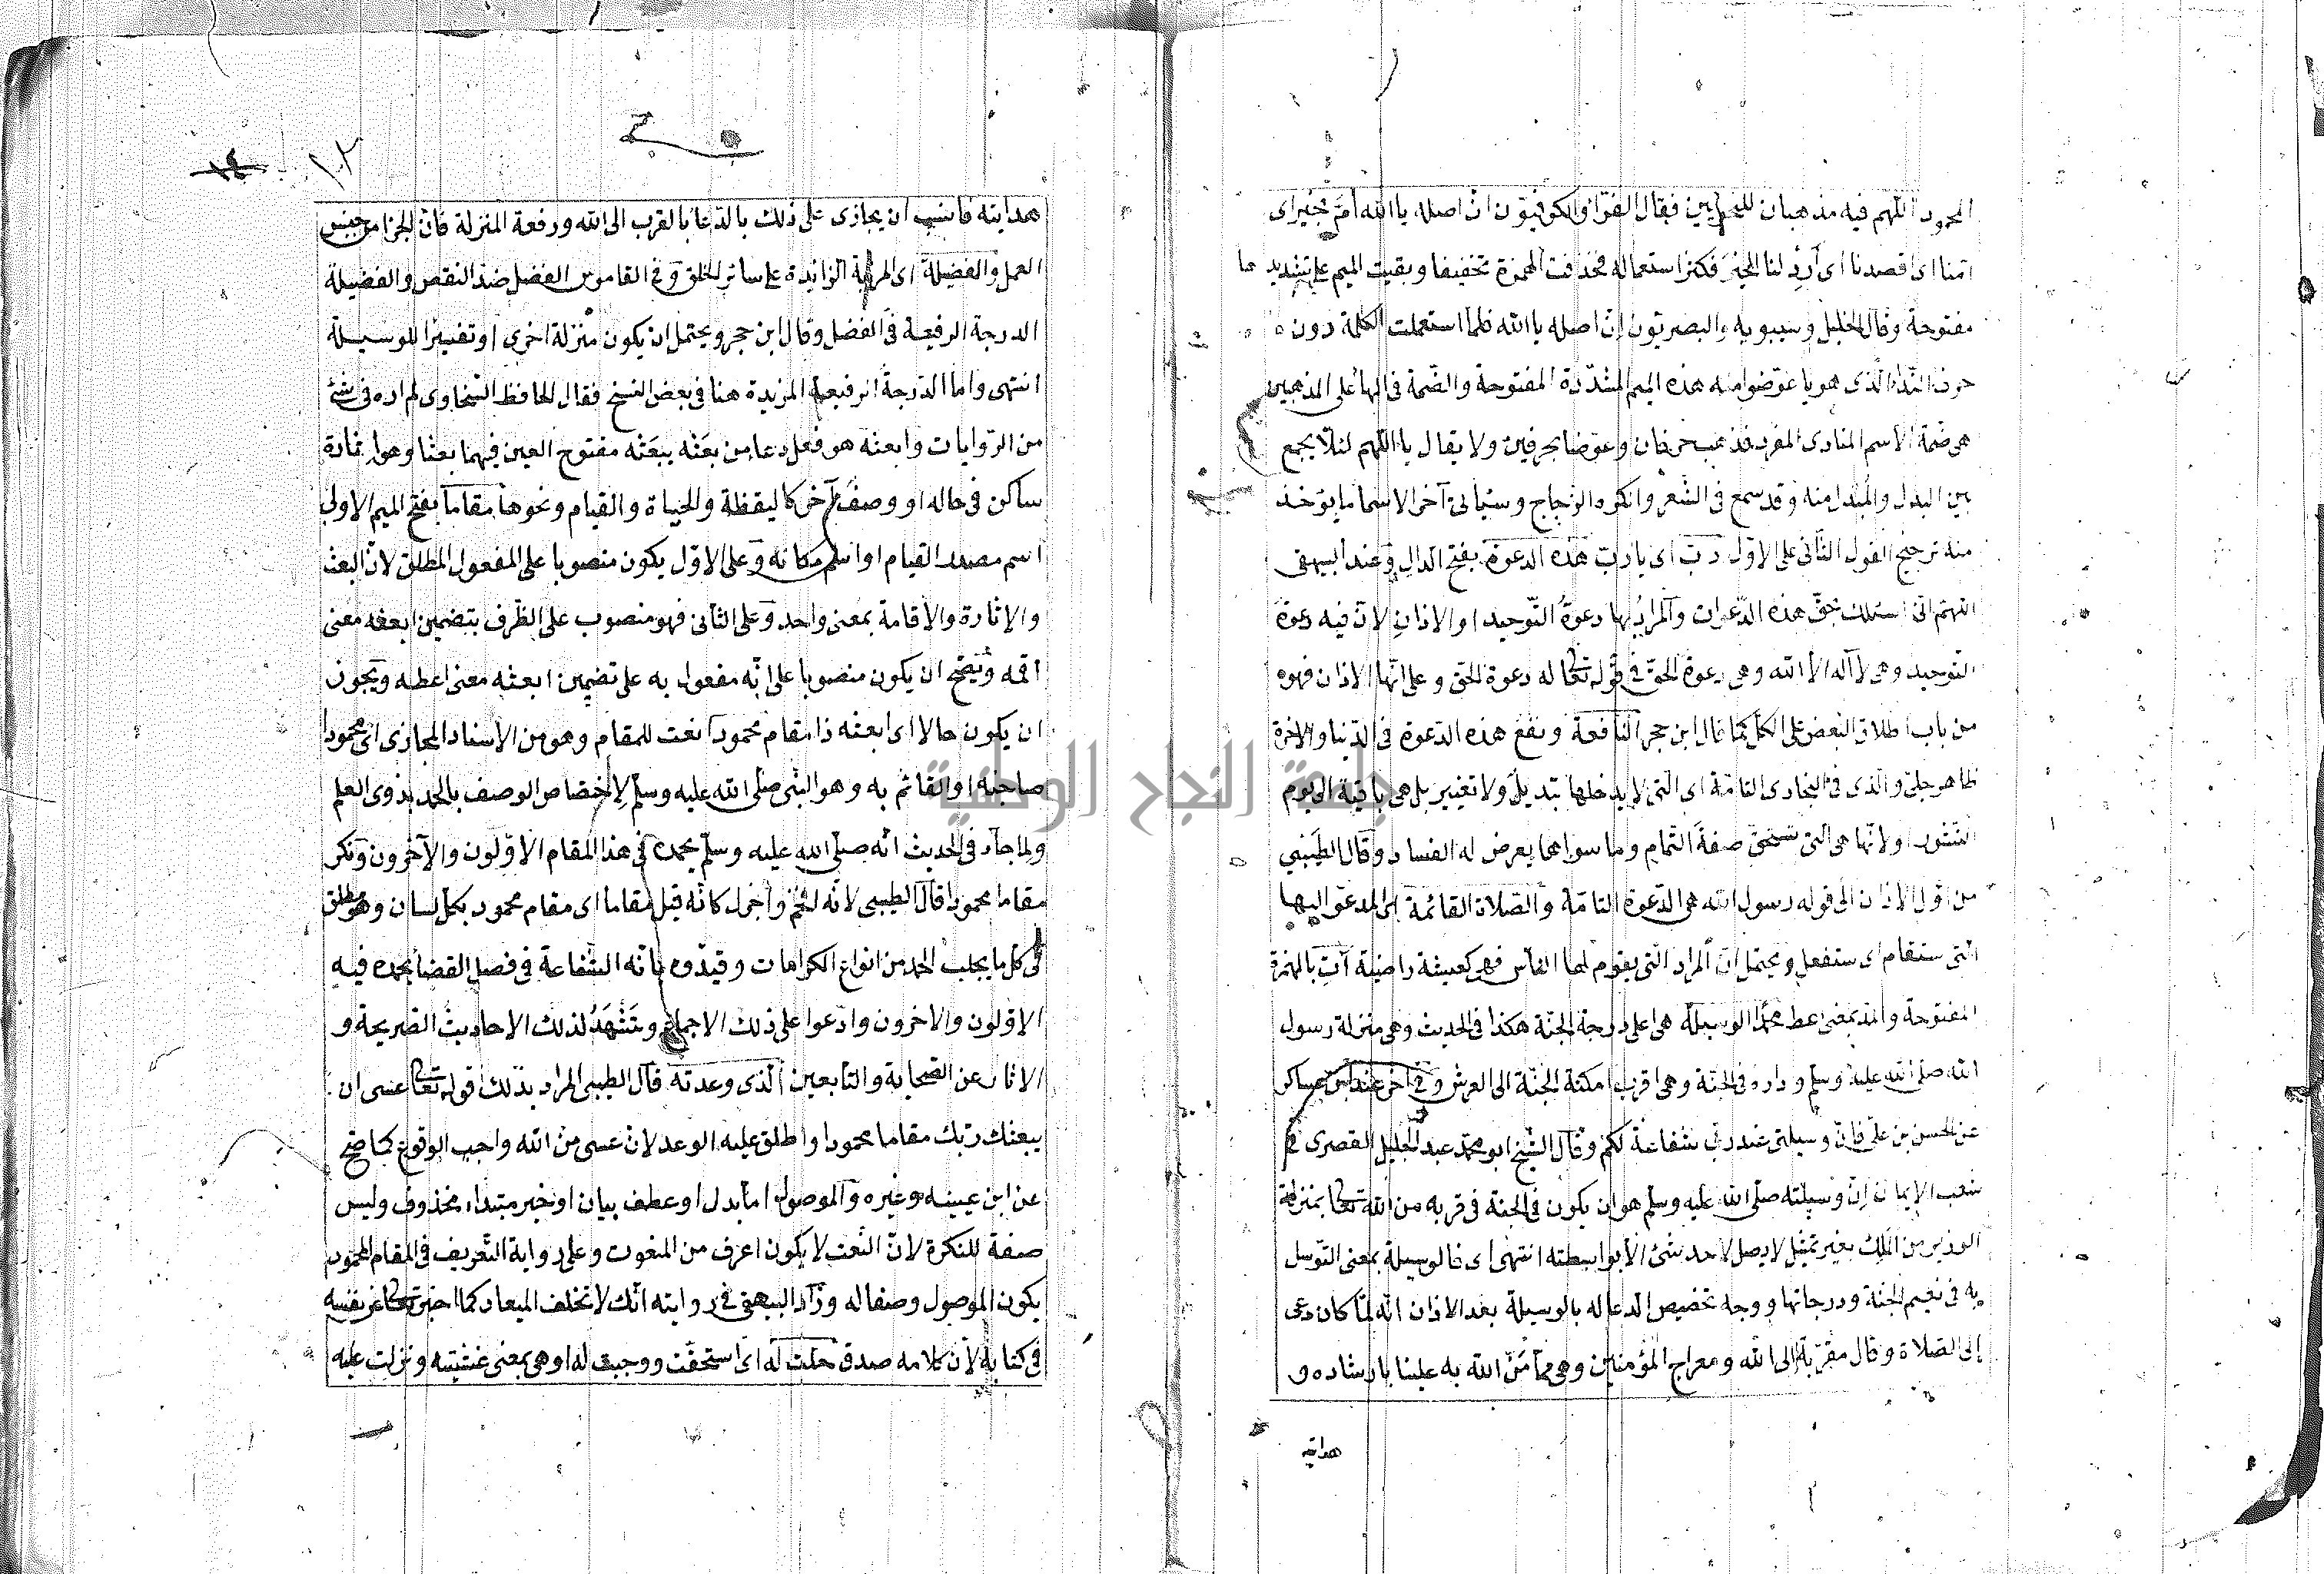 المحمود اللهم فيه مذهبان للنحويين فقال الفرّا والكوفيّون انّ اصله يا الله أمّ بخير اى
امّنا اى اقصدنا اى أَرِد لنا الخير فكثر استعماله فحذفت الهمزة تخفيفا وبقيت الميم على تشديدها
مفتوحة وقال الخليل وسيبويه والبصريّون إنّ اصله يا الله فلمّا استعملت الكلمة دون
حرف النّدا الّذى هو يا عوّضوا منه هذه الميم المشدّدة المفتوحة والضّمة فى الها على المذهبين
هى ضمّة الاسم المنادى المفرد فذهب حرفان وعوّضا بحرفين ولا يقال يا اللّهم لئلّا يجمع
بين البدل والمبدل منه وقد سمع فى الشّعر وانكره الزّجاج وسيأتى آخر الاسما ما يؤخذ
منه ترجيح القول الثّانى على الاوّل ربّ اى يا ربّ هذه الدعوة بفتح الدال وعند البيهقى
اللّهمّ انّى اسئلك بحقّ هذه الدّعوات والمراد بها دعوة التّوحيد او الاذان لانّ فيه دعوة
التّوحيد وهى لا آله الا الله وهى دعوة الحقّ فى قوله تعالى له دعوة الحق وعلى انّها الاذان فهو
من باب اطلاق البعض على الكلّ كما قال ابن حجر النّافعة ونفع هذه الدّعوة فى الدّنيا والاخرة
ظاهر جلىّ والّذى فى البخارى التامّة اى الّتى لا يدخلها تبديل ولا تغيير بل هى باقية الى يوم
النّشور ولانّها هى الّتى تستحقّ صفة التّمام وما سواها يعرض له الفساد وقال الطيّبى
من اوّل الاذان الى قوله رسول الله هى الدّعوة التامّة والصّلاة القائمة اى المدعوّ اليها
الّتى ستقام اى ستفعل ويحتمل انّ المراد الّتى يقوم لها النّاس فهى كعيشة راضية آت بالهمزة
المفتوحة والمدّ بمعنى اعط محمّدا الوسيلة هى اعلى درجة الجنّة هكذا فى الحديث وهى منزلة رسول
الله صلّى الله عليه وسلّم وداره فى الجنّة وهى اقرب امكنة الجنّة الى العرش وفى آخر عند ابن عساكر
عن الحسن بن علىّ فانّ وسيلتى عند ربّى شفاعة لكم وقال الشّيخ ابو محمّد عبد الجليل القصرى فى
شعب الإيمان انّ وسيلته صلّى الله عليه وسلّم هو ان يكون فى الجنة فى قربه من الله تعالى بمنزلة
الوزير من الملك بغير تمثيل لا يصل لاحد شئ الّا بواسطته انتهى اى فالوسيلة بمعنى التّوسل
به فى نعيم الجنة ودرجاتها ووجه تخصيص الدعا له بالوسيلة بعد الاذان انّه لمّا كان دعى
إلى الصّلاة وقال مقرّبة إلى الله ومعراج المؤمنين وهى ممّا مَنّ الله به علينا بارشاده و
هدايته
١٠٢
هدايته فانسب ان يجازى على ذلك بالدّعا بالقرب الى الله ورفعة المنزلة فانّ الجزا من جنس
العمل والفضيلة اى المرتبة الزائدة على سائر الخلق وفى القاموس الفضل ضدّ النقص والفضيلة
الدرجة الرفيعة فى الفضل وقال ابن حجر ويحتمل ان يكون منزلة اخرى او تفسيرا للوسيلة
انتهى واما الدّرجة الرفيعة المزيدة هنا فى بعض النسخ فقال الحافظ السّخاوى لم اره فى شئ
من الرّوايات وابعثه هو فعل دعا من بعَثه يبعَثه مفتوح العين فيهما بعثا وهو اثارة
ساكن فى حاله او وصف آخر كاليقظة والحياة والقيام ونحوها مقاما بفتح الميم الاولى
اسم مصدر القيام او اسم مكانه وعلى الاوّل يكون منصوبا على المفعول المطلق لانّ البعث
والإثارة والاقامة بمعنى واحد وعلى الثّانى فهو منصوب على الظّرف بتضمين ابعثه معنى
اقمه ويصحّ ان يكون منصوبا على انّه مفعول به على تضمين ابعثه معنى اعطه ويجوز
ان يكون حالا اى ابعثه ذا مقام محمودا نعت للمقام وهو من الاسناد المجازى اى محمودا
صاحبه او القائم به وهو النّبى صلّى الله عليه وسلّم لاختصاص الوصف بالحمد بذوى العلم
ولما جآء فى الحديث انّه صلّى الله عليه وسلّم يحمده فى هذا المقام الاوّلون والآخرون ونكر
مقاما محمودا قال الطيبى لانّه افخم واجزل كانّه قيل مقاما اى مقام محمود بكل لسان وهو مطلق
فى كلّ ما يجلب الحمد من انواع الكرامات وقيّدوه بانّه الشّفاعة فى فصل القضا يحمده فيه
الاوّلون والاخرون وادّعوا على ذلك الاجماع ويَشْهَدُ لذلك الاحاديث الصّريحة و
الاثار عن الصّحابة والتّابعين الّذى وعدته قال الطيبى المراد بذلك قوله تعالى عسى ان
يبعثك ربّك مقاما محمودا واطلق عليه الوعد لانّ عسى من الله واجب الوقوع كما صحّ
عن ابن عيينه وغيره والموصول امّا بدل او عطف بيان او خبر مبتداء محذوف وليس
صفة للنكرة لانّ النّعت لا يكون اعرف من المنعوت وعلى رواية التّعريف فى المقام المحمود
يكون الموصول وصفا له وزاد البيهقى فى روايته انّك لا تخلف الميعاد كما اخبر تعالى عن نفسه
فى كتابه لانّ كلامه صدق حلّت له اى استحقّت ووجبت له او هى بمعنى غشيته ونزلت عليه
جامعة النجاح الوطنية